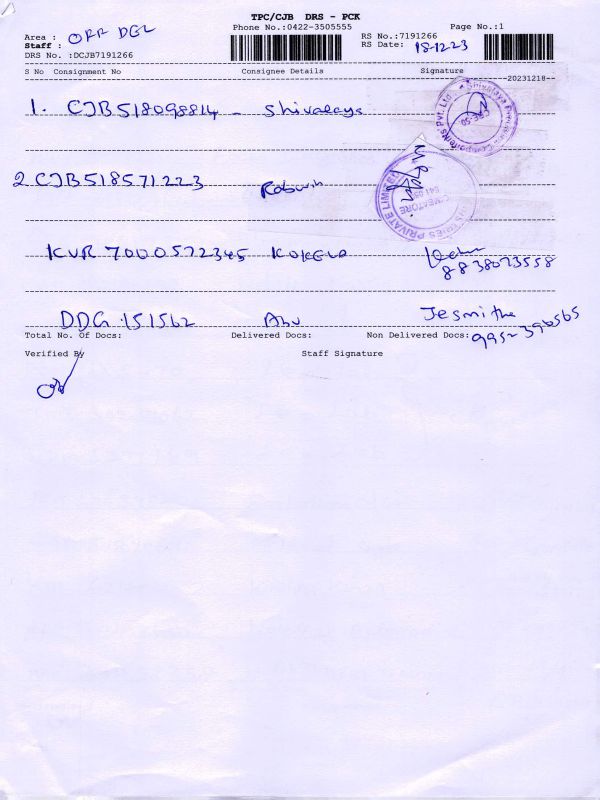 TPC/CJB DRS - PCK
Phone No.:0422-3505555 Page No.:1
Area : OFF DEL RS No.:7191266
Staff : RS Date: 18-12-23
DRS No. :DCJB7191266
S No Consignment No Consignee Details Signature
20231218
1. CJB518098814 - Shivalaya
Shivalaya Pvt. Ltd.
2. CJB518571223
PRIVATE LIMITED
KVR 7000572345
8838073558
DDG 151562 Abu Jesmitha
Total No. Of Docs: Delivered Docs: Non Delivered Docs:
Verified By Staff Signature